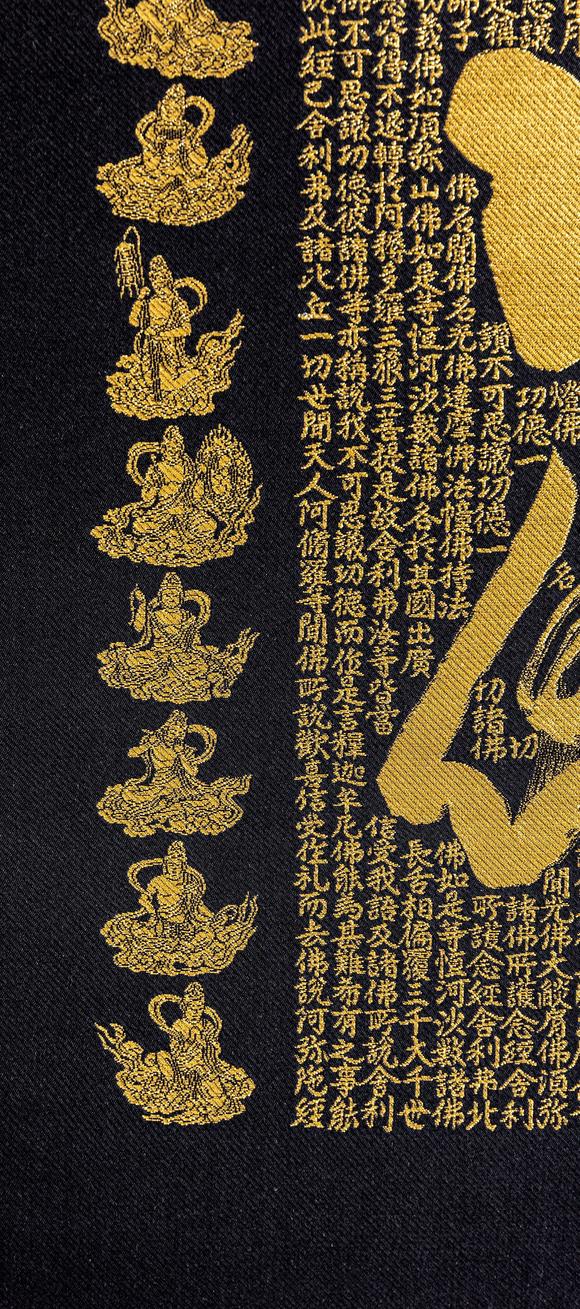 燈佛
名
聞光佛大燄肩佛須弥
思議
功德一
切
諸佛所護念經舍利
是稱
讚不可思議功德一
切諸佛
所護念經舍利弗北
師子
佛名聞佛名光佛達摩佛法幢佛持法
佛如是等恒河沙數諸佛
義佛如須弥山佛如是等恒河沙數諸佛各於其國出廣
長舌相徧覆三千大千世
皆得不退轉於阿耨多羅三藐三菩提是故舍利弗汝等皆當
信受我語及諸佛所說舍利
佛不可思議功德彼諸佛等亦稱說我不可思議功德而作是言釋迦牟尼佛能為甚難希有之事能
說此經已舍利弗及諸比丘一切世間天人阿脩羅等聞佛所說歡喜信受作礼而去佛說阿弥陀經